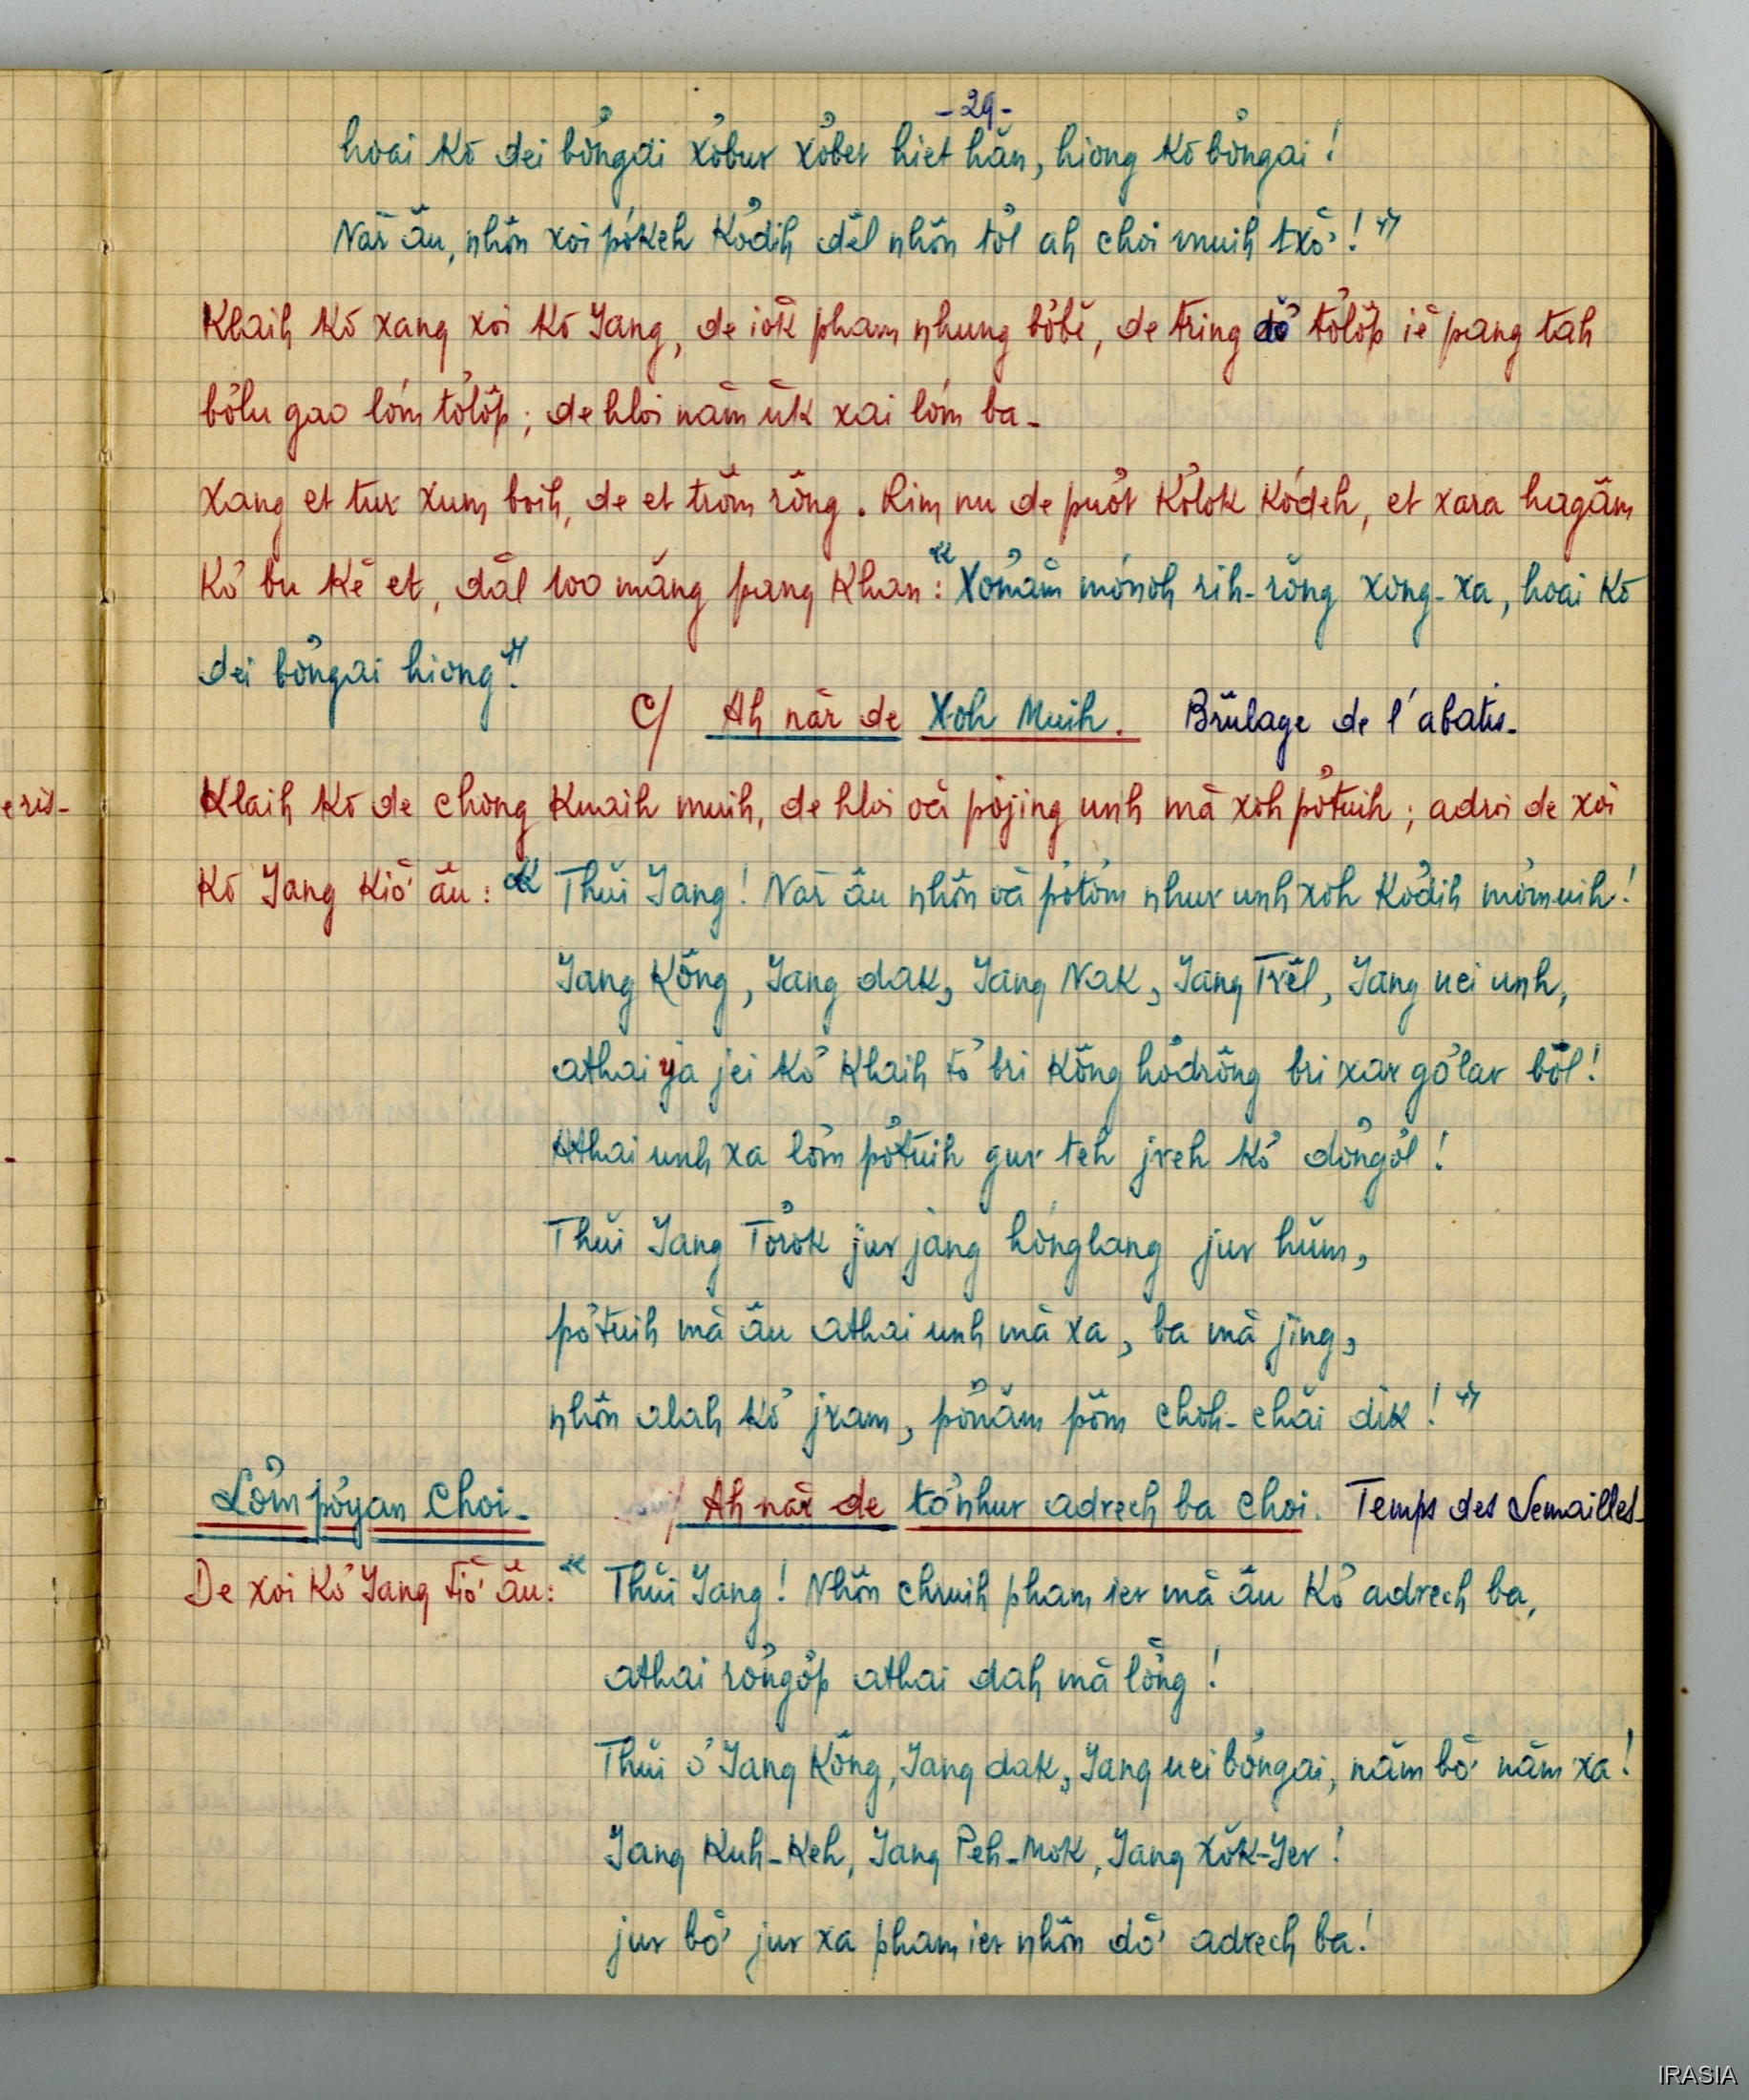 -29-
hoai kơ dei bơ̆ngai xơ̆bur xơ̆ber hiet hăn, hiong kơ bơ̆ngai !
Năr âu, nhôn xoi pơ̆keh kơ̆dih dêl nhôn tơ̆l ah choi muih txŏ' ! »
Klaih kơ xang xoi kơ Jang, de iŏk pham nhung bơ̆bĕ, de tring dơ̆ tơ̆lŏp iĕ pang tah
bơ̆lu gao lơ̆m tơ̆lŏp ; de hloi năm ŭk xai lơ̆m ba -
Xang et tur xum boih, de et trŏm rông . Rim nu de puơ̆t kơ̆lok kơ̆deh, et xara hagăm
kơ̆ bu kĕ et, dăl 100 măng pang khan : « Xơ̆năm mơ̆nơ̆h rih-rông xong-xa, hoai kơ
dei bơ̆ngai hiong ». 
C/ Ah năr de Xoh Muih. Brûlage de l'abatis.
eris-
Klaih kơ de chŏng kuaih muih, de hloi oă pơ̆jing unh mă xoh pơ̆tuih ; adroi de xoi
kơ Jang kiơ̆ âu : « Thŭi Jang ! Năr âu nhôn oă pơ̆tơ̆m nhur unh xoh kơ̆dih mơ̆muih !
Jang Kông, Jang dak, Jang Nak, Jang Trĕl, Jang uei unh,
athai ja jei kơ̆ klaih tơ̆ bri kông hơ̆drông bri xar gơ̆lar bôl !
Athai unh xa lơ̆m pơ̆tuih gur teh jreh kơ̆ dơ̆ngơ̆l !
Thŭi Jang Tơ̆rok jur jăng hơ̆nglang jur hŭm,
pơ̆tuih mă âu athai unh mă xa, ba mă jing,
nhôn alah kơ̆ jram, pơ̆năm pôm choh-chăi dĭk ! »
Lơ̆m pơ̆yan Choi -
Ah năr de tơ̆nhur adrech ba choi. Temps des Semailles-
De xoi kơ̆ Jang tiơ̆ âu : « Thŭi Jang ! Nhôn chruih pham ier mă âu kơ̆ adrech ba,
athai rơ̆ngơ̆p athai dah mă lơ̆ng !
Thŭi ơ̆ Jang Kông, Jang dak, Jang uei bơ̆ngai, năm bơ̆ năm xa !
Jang Kuh-Keh, Jang Peh-Mok, Jang Xŏk-Jer !
jur bơ̆ jur xa pham ier nhôn dơ̆ adrech ba !
IRASIA